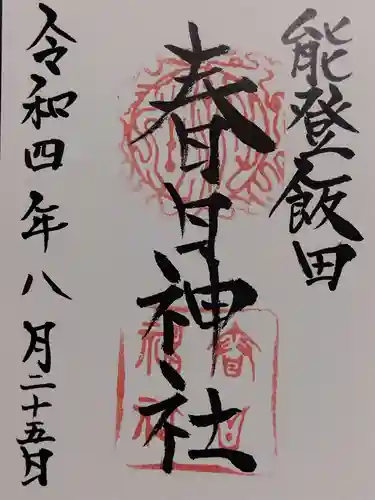 能登飯田
春日神社
令和四年八月二十五日
春日
神社